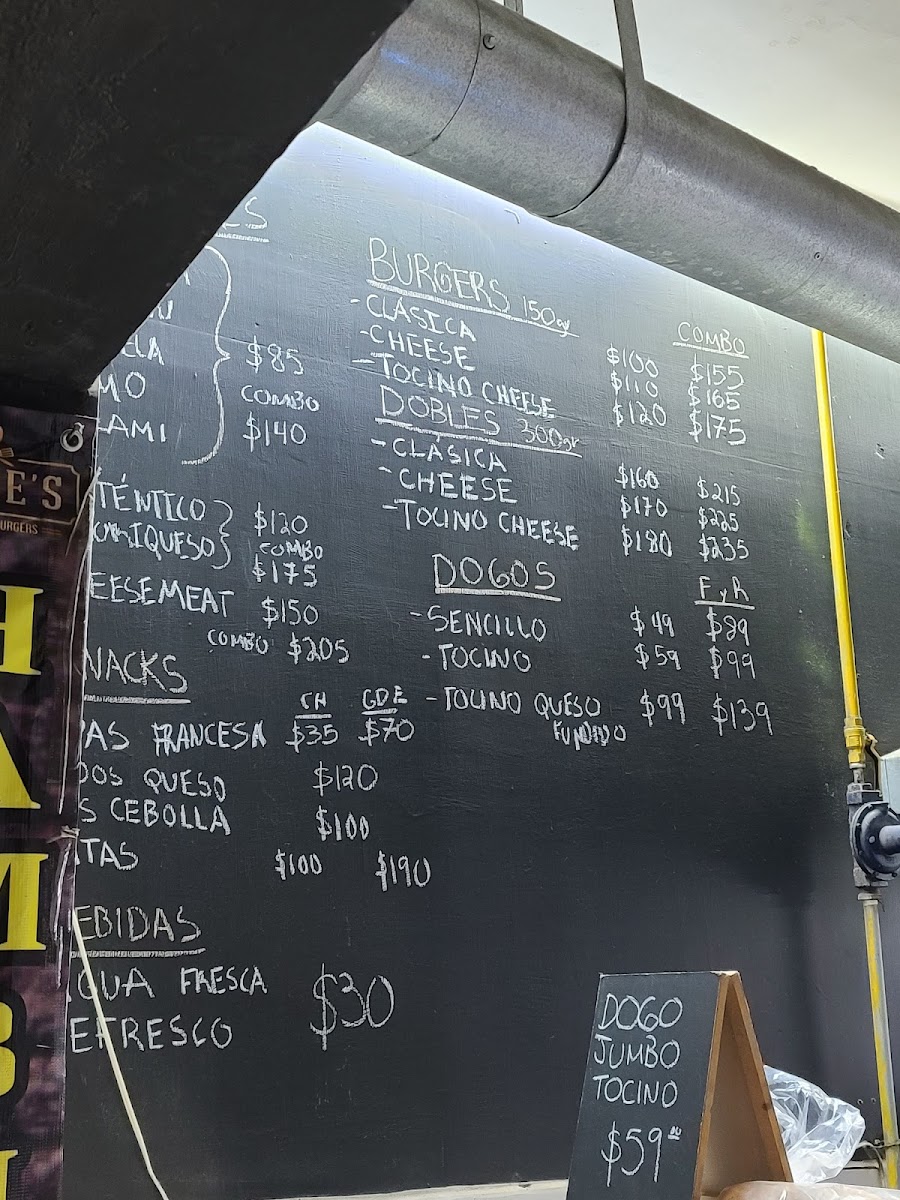 BURGERS 150gr
COMBO
-CLÁSICA $100 $155
-CHEESE $110 $165
-TOCINO CHEESE $120 $175
DOBLES 300gr
-CLÁSICA $160 $215
-CHEESE $170 $225
-TOCINO CHEESE $180 $235
DOGOS
F y R
-SENCILLO $49 $89
-TOCINO $59 $99
-TOCINO QUESO $99 $139
FUNDIDO
ES
ELA
$85
MO
COMBO
AMI
$140
TÉNTICO $120
IQUESO COMBO
$175
EESEMEAT $150
COMBO $205
NACKS
CH GDE
AS FRANCESA $35 $70
DOS QUESO $120
S CEBOLLA $100
TAS $100 $190
EBIDAS
GUA FRESCA
$30
EFRESCO
DOGO
JUMBO
TOCINO
$59.00
E'S
URGERS
H
A
M
B